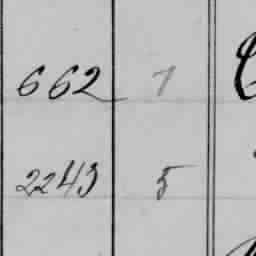 662 1
2243 5